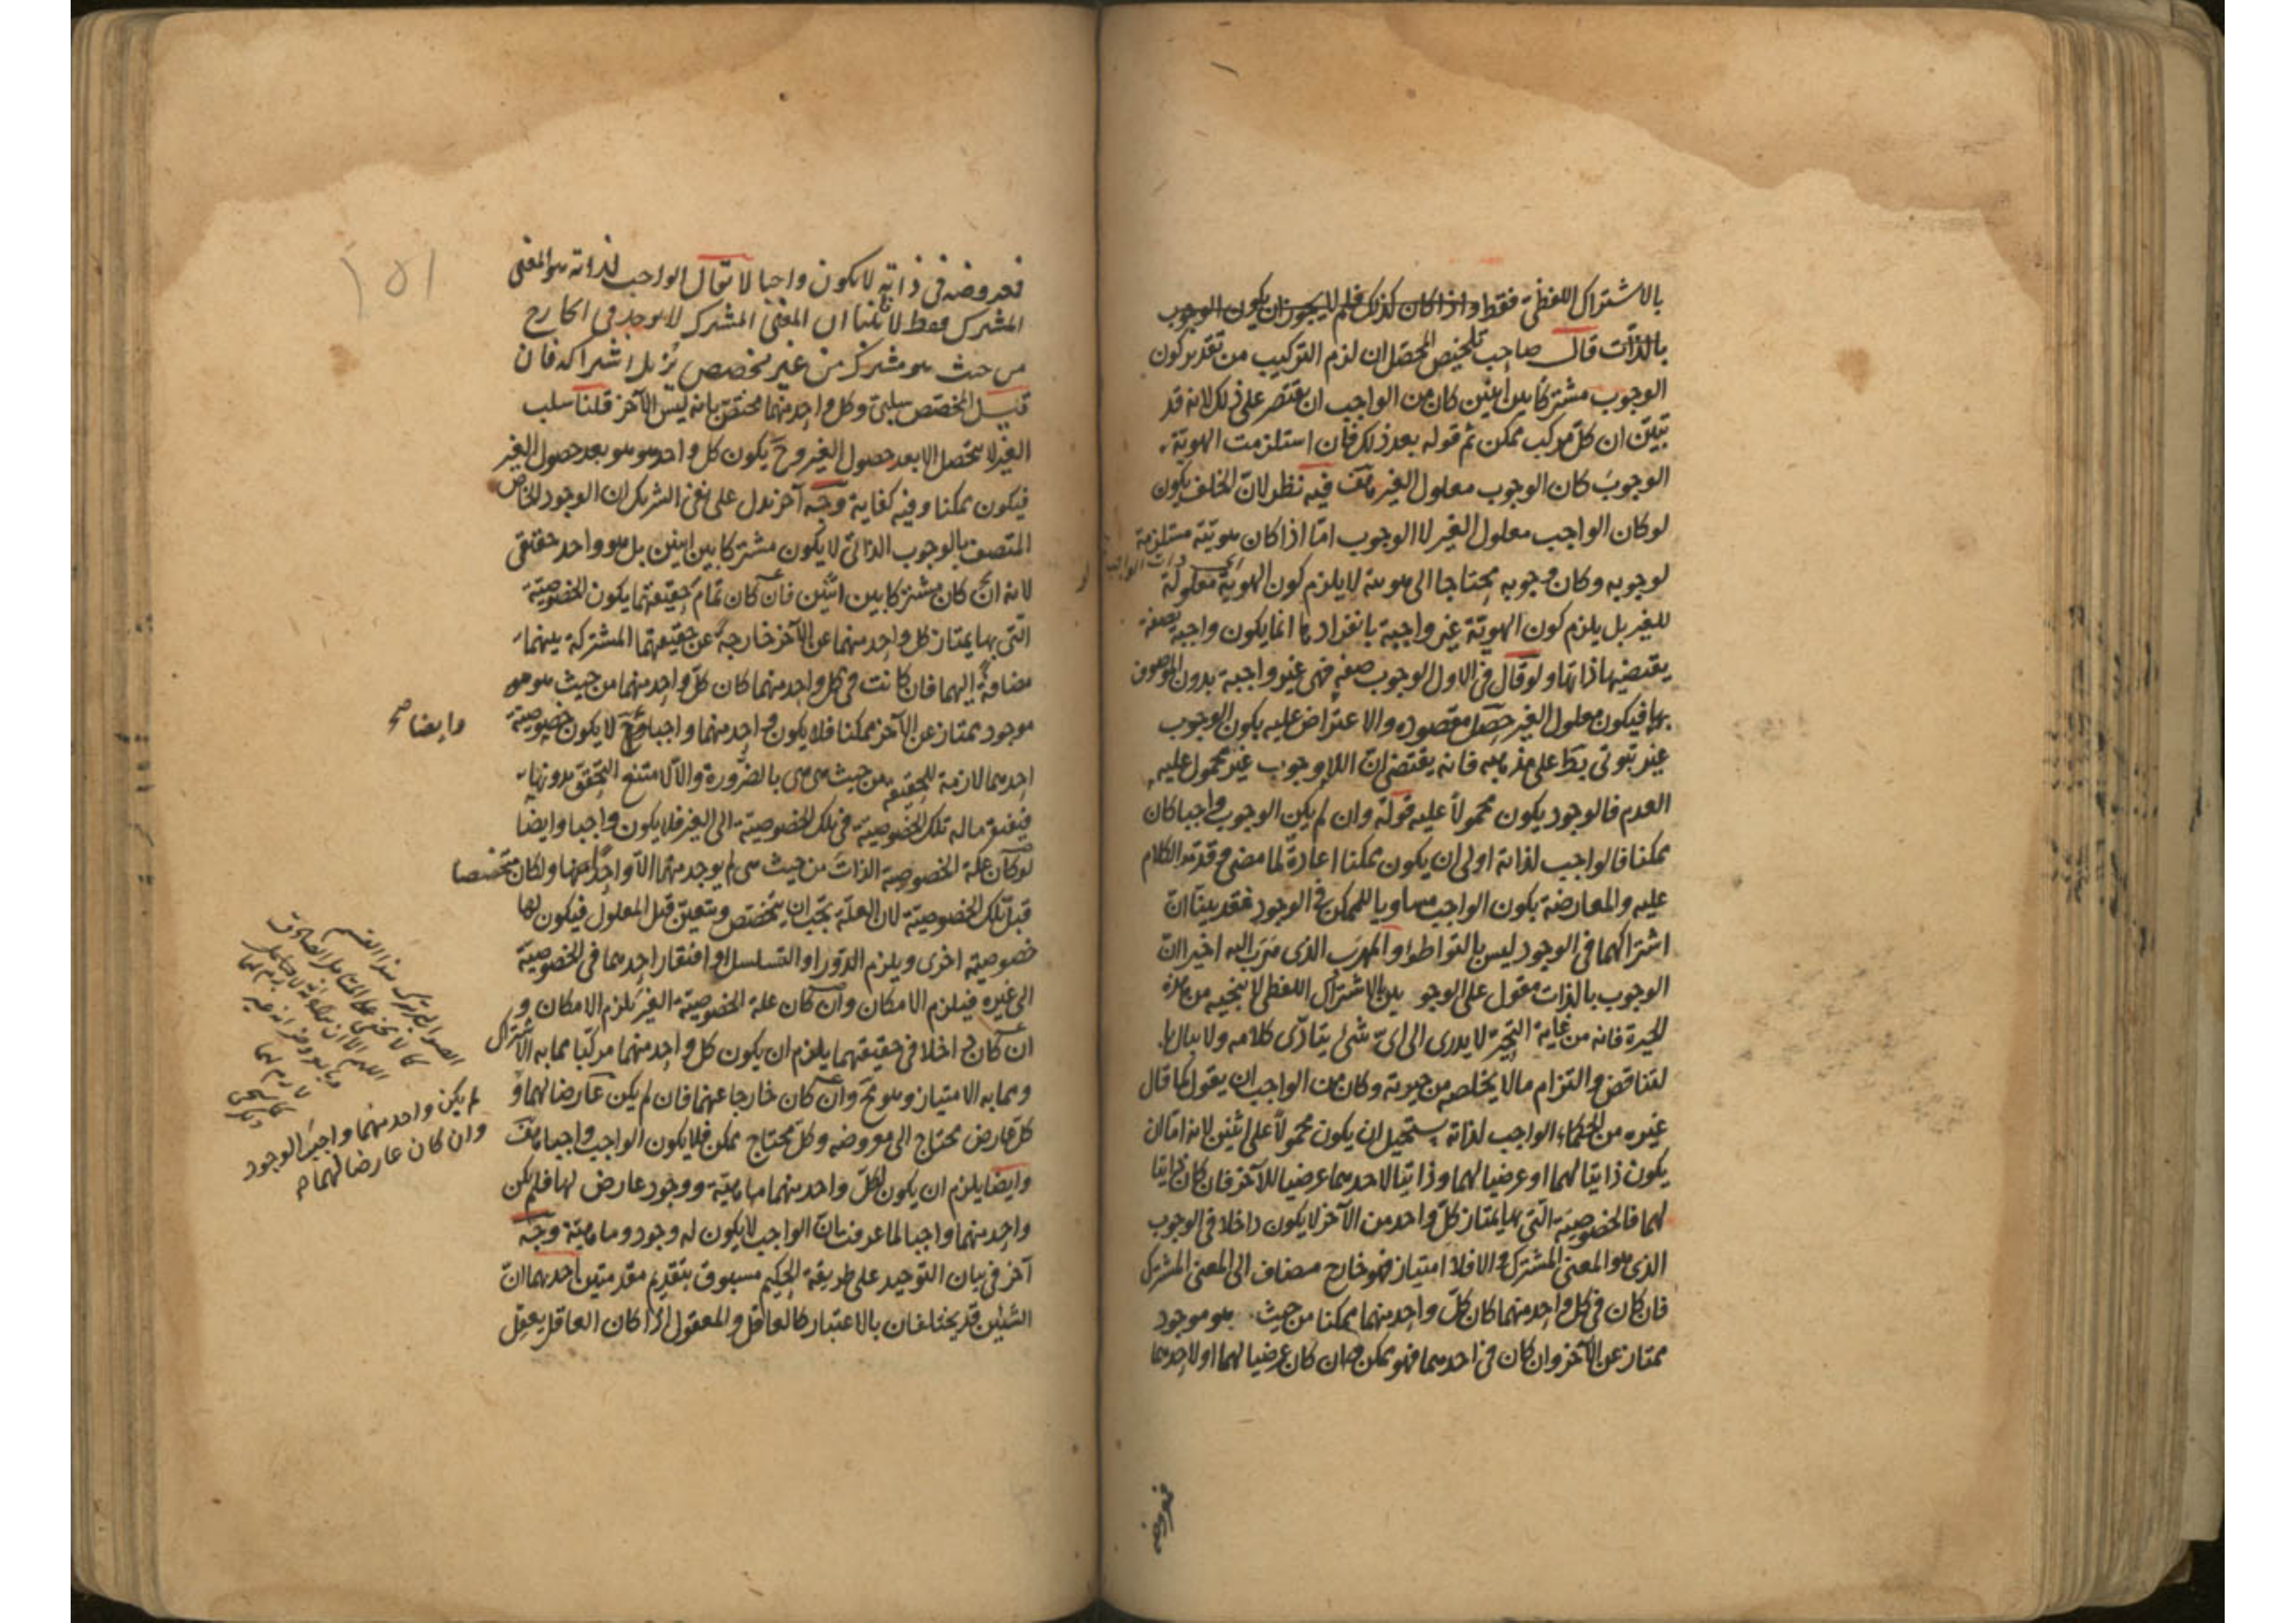 بالاشتراك اللفظى فقط واذا كان كذلك فلم لا يجوز ان يكون الوجوب
بالذات قال صاحب تلخيص المحصل ان لزم التركيب من تقدير كون
الوجوب مشتركا بين اثنين كان من الواجب ان يقتصر على ذلك لانه قد
تبين ان كل مركب ممكن ثم قوله بعد ذلك فان استلزمت الهوية
الوجوب كان الوجوب معلول الغير فيه نظر لان الخلف يكون
لو كان الواجب معلول الغير لا الوجوب اما اذا كان هويته مستلزمة
لوجوبه وكان وجوبه محتاجا الى هويته لا يلزم كون الهوية معلولة
للغير بل يلزم كون الهوية غير واجبة بانفرادها انما يكون واجبة بصفة
يقتضيها ذاتها ولو قال فى الاول الوجوب صفة فهى غير واجبة بدون الموصوف
بها فيكون معلول الغير حصل مقصوده والاعتراض عليه بكون الوجوب
غير ثبوتى على مذهبه فانه يقتضى ان اللاوجوب غير محمول عليه
العدم فالوجود يكون محمولا عليه قوله وان لم يكن الوجوب واجبا كان
ممكنا فالواجب لذاته اولى ان يكون ممكنا اعادة لما مضى وقد مر الكلام
عليه والمعارضة بكون الواجب مساويا للممكن فى الوجود فقد بينا ان
اشتراكهما فى الوجود ليس بالتواطؤ والمهرب الذى هرب اليه اخيرا ان
الوجوب بالذات مقول على الوجو بين بالاشتراك اللفظى لا ينجيه من هذه
الحيرة فانه من غاية التحير لا يدرى الى اى شئ يتادى كلامه ولا يبال
لتناقض والتزام ما لا يخلصه من حيرته وكان من الواجب ان يقول كما قال
غيره من الحكماء الواجب لذاته يستحيل ان يكون محمولا على اثنين لانه اما ان
يكون ذاتيا لهما او عرضيا لهما او ذاتيا لاحدهما عرضيا للآخر فان كان ذاتيا
لهما فالخصوصية التى بها يمتاز كل واحد من الآخر لا يكون داخلا فى الوجوب
الذى هو المعنى المشترك والا فلا امتياز فهو خارج مضاف الى المعنى المشترك
فان كان فى كل واحد منهما كان كل واحد منهما ممكنا من حيث هو موجود
ممتاز عن الآخر وان كان فى احدهما فهو ممكن وان كان عرضيا لهما او لاحدهما
فمعروضه
١٥١
فمعروضه فى ذاته لا يكون واجبا لا يقال الواجب لذاته هو المعنى
المشترك فقط لانا قلنا ان المعنى المشترك لا يوجد فى الخارج
من حيث هو مشترك من غير مخصص يزيل اشتراكه فان
قيل المخصص سلبى وكل واحد منهما مختص بانه ليس الآخر قلنا سلب
الغير لا يتحصل الا بعد حصول الغير وح يكون كل واحد هو هو بعد حصول الغير
فيكون ممكنا وفيه كفاية وجه آخر يدل على نفى الشريك ان الوجود الخاص
المتصف بالوجوب الذاتى لا يكون مشتركا بين اثنين بل هو واحد حقيقى
لانه ان كان مشتركا بين اثنين فان كان تمام حقيقتهما يكون الخصوصية
التى بها يمتاز كل واحد منهما عن الآخر خارجة عن حقيقتهما المشتركة بينهما
مضافة اليهما فان كانت فى كل واحد منهما كان كل واحد منهما من حيث هو هو
موجود ممتاز عن الآخر ممكنا فلا يكون واحد منهما واجبا وح لا يكون خصوصية
وايضا صح
احدهما لازمة للحقيقة من حيث هى هى بالضرورة والا لامتنع التحقق بدونها
فيفتقر ماله تلك الخصوصية فى تلك الخصوصية الى الغير فلا يكون واجبا وايضا
لو كان علة الخصوصية الذات من حيث هى لم يوجد منهما الا واحد منهما ولكان متخصصا
قبل تلك الخصوصية لان العلة يجب ان يتخصص ويتعين قبل المعلول فيكون لها
خصوصية اخرى ويلزم الدور او التسلسل او افتقار احدهما فى الخصوصية
الى غيره فيلزم الامكان وان كان علة الخصوصية الغير يلزم الامكان و
ان كان داخلا فى حقيقتهما يلزم ان يكون كل واحد منهما مركبا مما به الاشتراك
ومما به الامتياز وهو مح وان كان خارجا عنهما فان لم يكن عارضا لهما و
كل عارض محتاج الى معروضه وكل محتاج ممكن فلا يكون الواجب واجبا
وايضا يلزم ان يكون لكل واحد منهما ماهية ووجود عارض لها فلم يكن
واحد منهما واجبا لما عرفت ان الواجب لا يكون له وجود وماهية وجه
آخر فى بيان التوحيد على طريقة الحكيم مسبوق بتقديم مقدمتين احدهما ان
الشيئين قد يختلفان بالاعتبار كالعاقل والمعقول اذا كان العاقل يعقل
لم يكن واحد منهما واجب الوجود
وان كان عارضا لهما صح